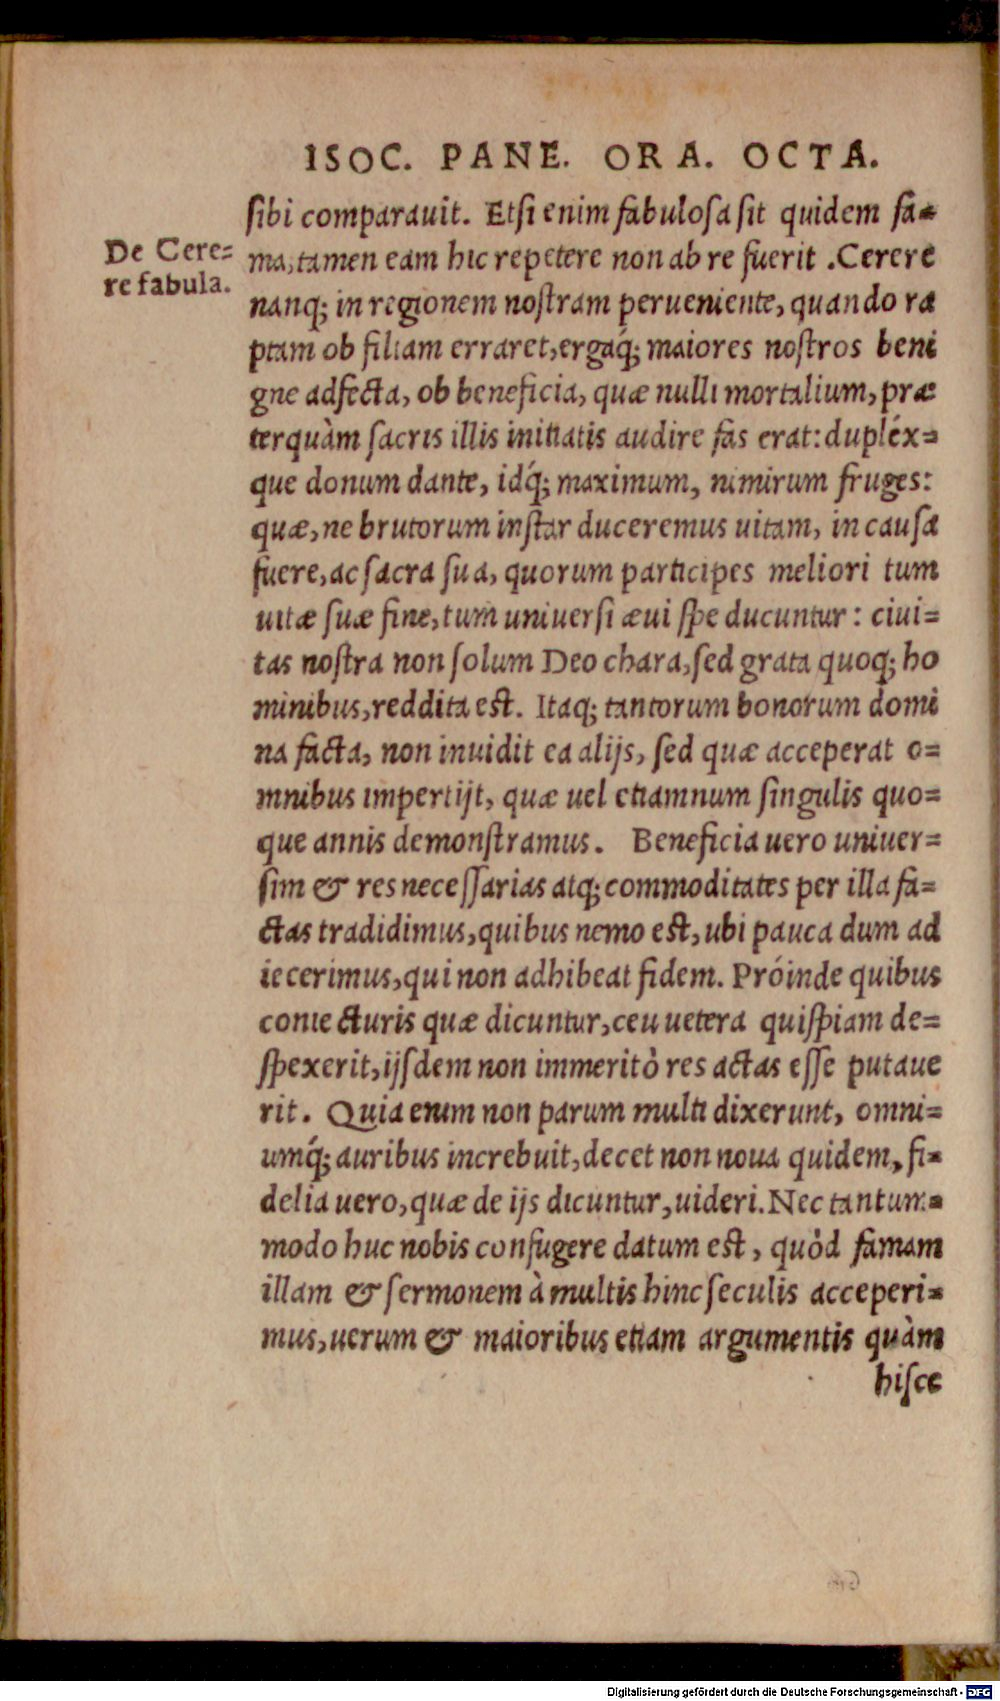 ISOC. PANE. ORA. OCTA.
De Cere=
re fabula.
sibi comparauit. Etsi enim fabulosa sit quidem fa=
ma, tamen eam hic repetere non ab re fuerit. Cerere
nanq; in regionem nostram perueniente, quando ra
ptam ob filiam erraret, ergaq́; maiores nostros beni
gne adfecta, ob beneficia, quæ nulli mortalium, præ
terquàm sacris illis initiatis audire fas erat: dupléx=
que donum dante, idq́; maximum, nimirum fruges:
quæ, ne brutorum instar duceremus uitam, in causa
fuere, ac sacra sua, quorum participes meliori tum
uitæ suæ fine, tum uniuersi æui spe ducuntur: ciui=
tas nostra non solum Deo chara, sed grata quoq; ho
minibus, reddita est. Itaq; tantorum bonorum domi
na facta, non inuidit ea alijs, sed quæ acceperat o=
mnibus impertijt, quæ uel etiamnum singulis quo=
que annis demonstramus. Beneficia uero uniuer=
sim & res necessarias atq; commoditates per illa fa=
ctas tradidimus, quibus nemo est, ubi pauca dum ad
iecerimus, qui non adhibeat fidem. Próinde quibus
coniecturis quæ dicuntur, ceu uetera quispiam de=
spexerit, ijsdem non immeritò res actas esse putaue
rit. Quia enim non parum multi dixerunt, omni=
umq́; auribus increbuit, decet non noua quidem, fi=
delia uero, quæ de ijs dicuntur, uideri. Nec tantum=
modo huc nobis confugere datum est, quòd famam
illam & sermonem à multis hinc seculis acceperi=
mus, uerum & maioribus etiam argumentis quàm
hisce
Digitalisierung gefördert durch die Deutsche Forschungsgemeinschaft - DFG